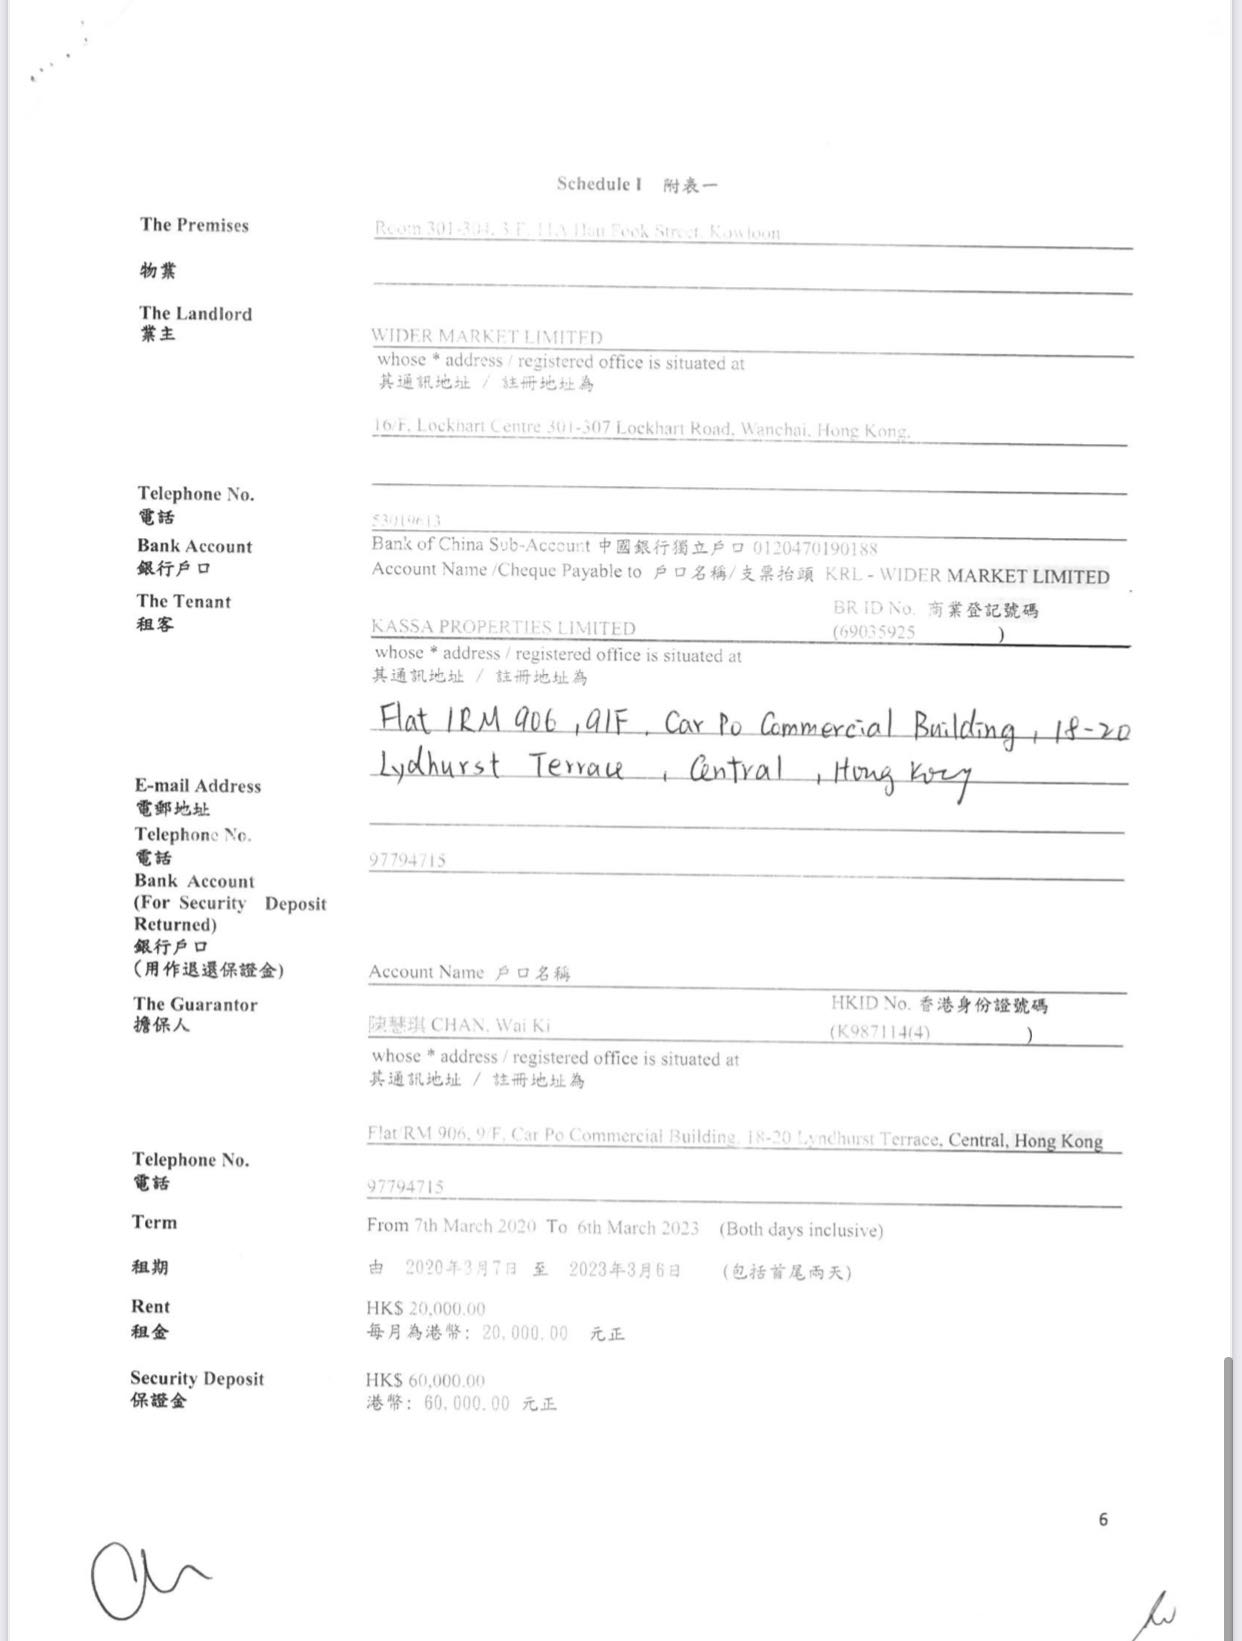 Schedule I 附表一
The Premises
Room 301-304, 3/F, 11A Hau Fook Street, Kowloon
物業
The Landlord
業主
WIDER MARKET LIMITED
whose * address / registered office is situated at
其通訊地址 / 註冊地址為
16/F, Lockhart Centre 301-307 Lockhart Road, Wanchai, Hong Kong.
Telephone No.
電話
53019613
Bank Account
銀行戶口
Bank of China Sub-Account 中國銀行獨立戶口 0120470190188
Account Name /Cheque Payable to 戶口名稱/支票抬頭 KRL - WIDER MARKET LIMITED
The Tenant
租客
BR ID No. 商業登記號碼
KASSA PROPERTIES LIMITED (69035925 )
whose * address / registered office is situated at
其通訊地址 / 註冊地址為
Flat /RM 906 , 9/F , Car Po Commercial Building , 18-20
Lydhurst Terrace , Central , Hong Kong
E-mail Address
電郵地址
Telephone No.
電話
97794715
Bank Account
(For Security Deposit
Returned)
銀行戶口
(用作退還保證金)
Account Name 戶口名稱
The Guarantor
擔保人
HKID No. 香港身份證號碼
陳慧琪 CHAN, Wai Ki (K987114(4) )
whose * address / registered office is situated at
其通訊地址 / 註冊地址為
Flat/RM 906, 9/F, Car Po Commercial Building, 18-20 Lyndhurst Terrace, Central, Hong Kong
Telephone No.
電話
97794715
Term
From 7th March 2020 To 6th March 2023 (Both days inclusive)
租期
由 2020年3月7日 至 2023年3月6日 (包括首尾兩天)
Rent
HK$ 20,000.00
租金
每月為港幣: 20,000.00 元正
Security Deposit
HK$ 60,000.00
保證金
港幣: 60,000.00 元正
6